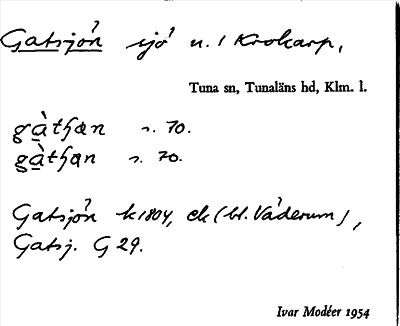 Gatsjön sjö n. i Krokarp,
Tuna sn, Tunaläns hd, Klm. l.
gàtɧen s. 70.
gàtɧan s. 70.
Gatsjön k 1804, ek (bl. Väderum),
Gatsj. G 29.
Ivar Modéer 1954